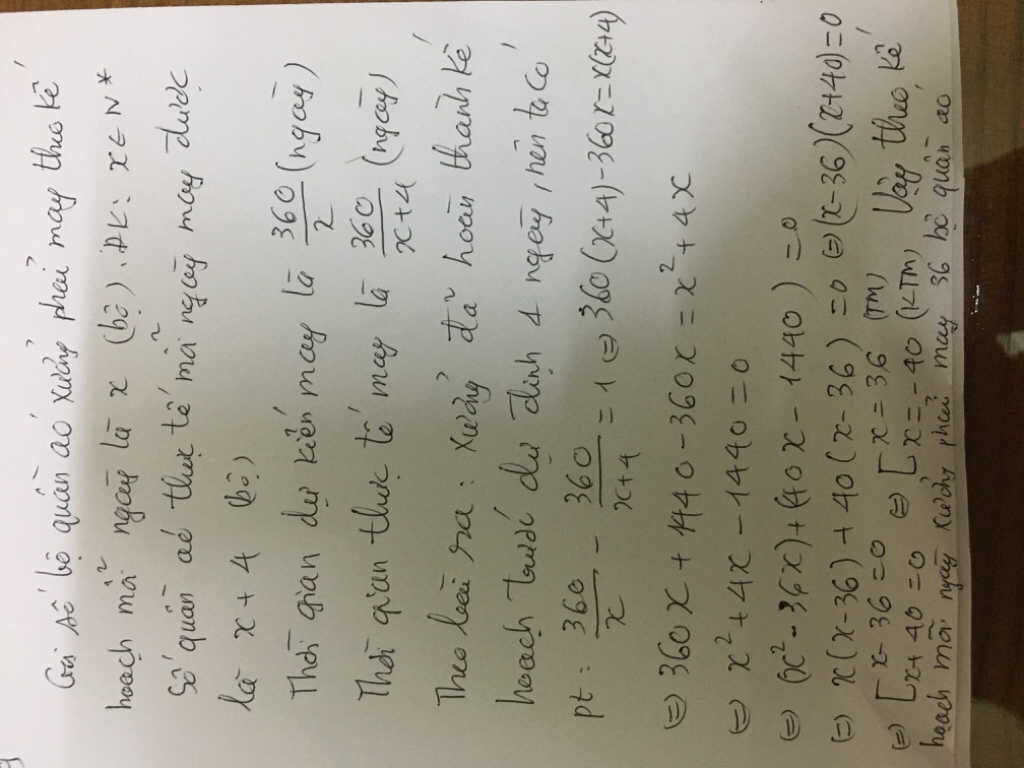 Gọi số bộ quần áo xưởng phải may theo kế
hoạch mỗi ngày là x (bộ). ĐK: x ∈ N*
Số quần áo thực tế mỗi ngày may được
là x + 4 (bộ)
Thời gian dự kiến may là 360/x (ngày)
Thời gian thực tế may là 360/x+4 (ngày)
Theo bài ra: Xưởng đã hoàn thành kế
hoạch trước dự định 1 ngày, nên ta có
pt: 360/x - 360/x+4 = 1 (=) 360(x+4) - 360x = x(x+4)
(=) 360x + 1440 - 360x = x² + 4x
(=) x² + 4x - 1440 = 0
(=) (x² - 36x) + (40x - 1440) = 0
(=) x(x - 36) + 40(x - 36) = 0 (=) (x-36)(x+40) = 0
(=) [x - 36 = 0 (=) [x = 36 (TM) Vậy theo kế
[x + 40 = 0 [x = -40 (KTM)
hoạch mỗi ngày xưởng phải may 36 bộ quần áo